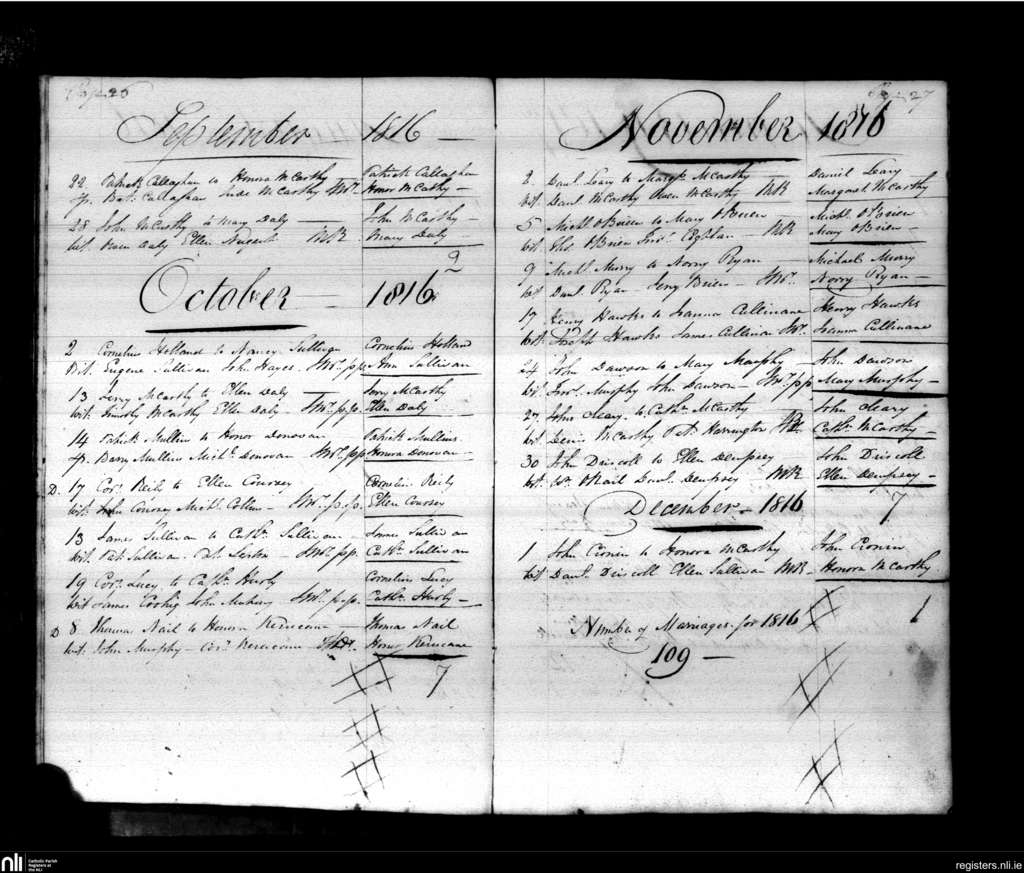 Page 26
September 1816
22 Patrick Callaghan to Honora McCarthy Patrick Callaghan
Sp. Bat: Callaghan Jude McCarthy Honor McCarthy
28 John McCarthy to Mary Daly John McCarthy
Wit. Owen Daly Ellen Nugent MR Mary Daly
2
October 1816
2 Cornelius Holland to Nancy Sullivan Cornelius Holland
Wit. Eugene Sullivan John Hayes p.p. Ann Sullivan
13 Jerry McCarthy to Ellen Daly Jerry McCarthy
Wit. Timothy McCarthy Ellen Daly p.p. Ellen Daly
14 Patrick Mullins to Honor Donovan Patrick Mullins
Sp. Barry Mullins Michl. Donovan p.p. Honora Donovan
D. 17 Cors. Reily to Ellen Coursey Cornelius Reily
Wit. John Coursey Michl. Collins p.p. Ellen Coursey
13 James Sullivan to Cathe. Sullivan James Sullivan
Wit. Pat Sullivan Pat p.p. Cathe. Sullivan
19 Cors. Lucy to Cathe. Hurly Cornelius Lucy
Wit James John p.p. Cathe. Hurly
D 8 Thomas Nail to Honora Thomas Nail
Wit. John Murphy Cors. Honor
7
Page 27
November 1816
2. Danl. Leary to Margt. McCarthy Daniel Leary
Wit. Danl. McCarthy Owen McCarthy MR Margaret McCarthy
5 Michl. OBrien to Mary OBrien Michl. OBrien
Wit. Ths. OBrien Coghlan MR Mary OBrien
9 Michl. Murry to Norry Ryan Michael Murry
Wit Danl. Ryan Jerry Brien Norry Ryan
17 Henry Hawks to Joanna Cullinane Henry Hawks
Wit. Joseph Hawks James Cullinan Joanna Cullinane
24 John Dawson to Mary Murphy John Dawson
Wit. Murphy John Dawson p.p. Mary Murphy
27 John Leary to Cathe. McCarthy John Leary
Wit Denis McCarthy Pat Harrington Cathe. McCarthy
30 John Driscoll to Ellen Dempsey John Driscoll
Wit. Wm. Danl. Dempsey MR Ellen Dempsey
December 1816 7
1 John Cronin to Honora McCarthy John Cronin
Wit Danl. Driscoll Ellen Sullivan MR Honora McCarthy
1
Number of Marriages for 1816
109
nli Catholic Parish Registers at the NLI
registers.nli.ie